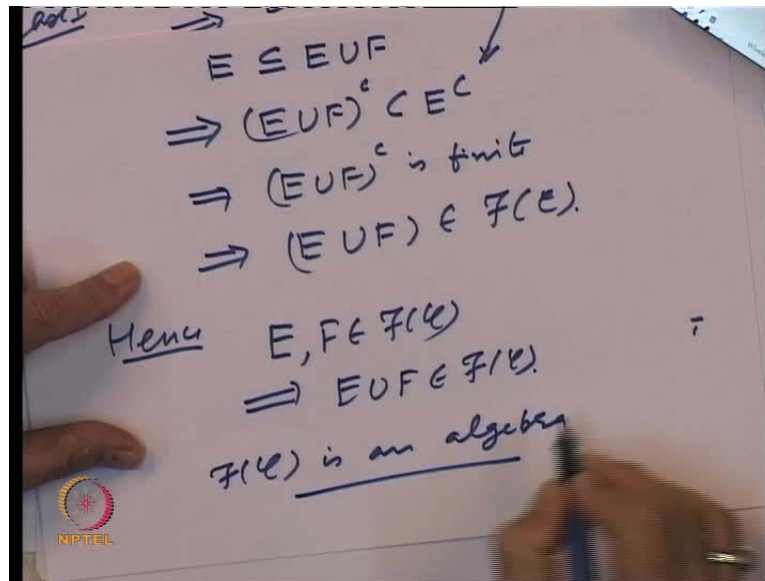 ⇒
E ⊆ E ∪ F
⇒ (E ∪ F)ᶜ ⊂ Eᶜ
⇒ (E ∪ F)ᶜ is finite
⇒ (E ∪ F) ∈ F(C).
Hence E, F ∈ F(C)
⇒ E ∪ F ∈ F(C).
F(C) is an algebra
NPTEL